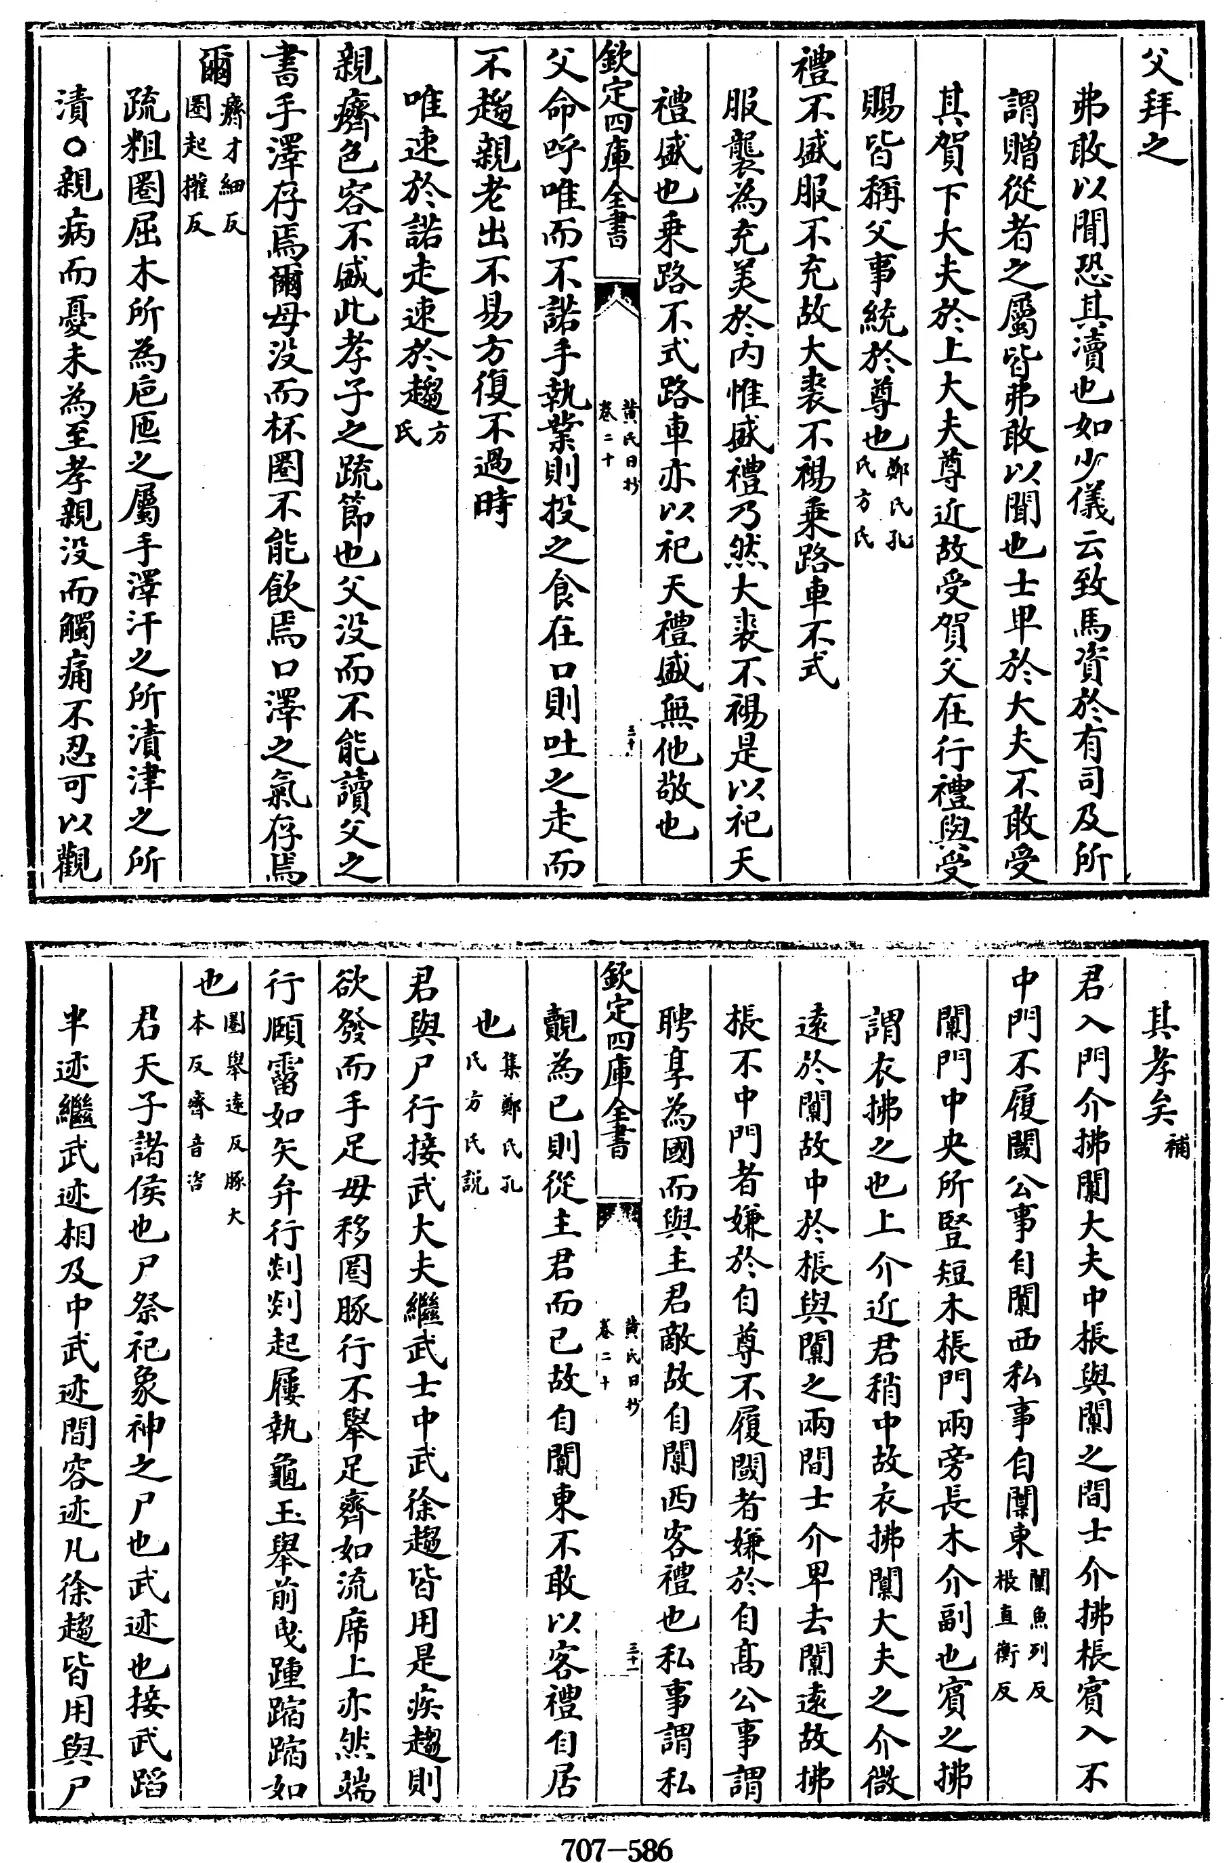 父拜之
弗敢以聞恐其瀆也如少儀云致馬資於有司及所
謂贈從者之屬皆弗敢以聞也士卑於大夫不敢受
其賀下大夫於上大夫尊近故受賀父在行禮與受
賜皆稱父事統於尊也鄭氏孔氏方氏
禮不盛服不充故大裘不裼乗路車不式
服襲為充美於内惟盛禮乃然大裘不裼是以祀天
禮盛也乗路不式路車亦以祀天禮盛無他敬也
欽定四庫全書 黄氏日抄 卷二十 三十
父命呼唯而不諾手執業則投之食在口則吐之走而
不趨親老出不易方復不過時
唯速於諾走速於趨方氏
親癠色容不盛此孝子之疏節也父没而不能讀父之
書手澤存焉爾母没而杯圏不能飲焉口澤之氣存焉
爾癠才細反圏起權反
疏粗圏屈木所為巵匜之屬手澤汗之所漬津之所
漬○親病而憂未為至孝親没而觸痛不忍可以觀
其孝矣補
君入門介拂闑大夫中棖與闑之間士介拂棖賓入不
中門不履閾公事自闑西私事自闑東闑魚列反棖直衡反
闑門中央所豎短木棖門兩旁長木介副也賓之拂
謂衣拂之也上介近君稍中故衣拂闑大夫之介微
逺於闑故中於棖與闑之兩間士介卑去闑逺故拂
棖不中門者嫌於自尊不履閾者嫌於自髙公事謂
聘享為國而與主君敵故自闑西客禮也私事謂私
欽定四庫全書 黄氏日抄 卷二十 三十一
覿為已則從主君而已故自闑東不敢以客禮自居
也集鄭氏孔氏方氏説
君與尸行接武大夫繼武士中武徐趨皆用是疾趨則
欲發而手足毋移圏豚行不舉足齊如流席上亦然端
行頤霤如矢弁行剡剡起屨執龜玉舉前曵踵蹜蹜如
也圏舉逺反豚大本反齊音咨
君天子諸侯也尸祭祀象神之尸也武迹也接武蹈
半迹繼武迹相及中武迹間容迹凡徐趨皆用與尸
707-586